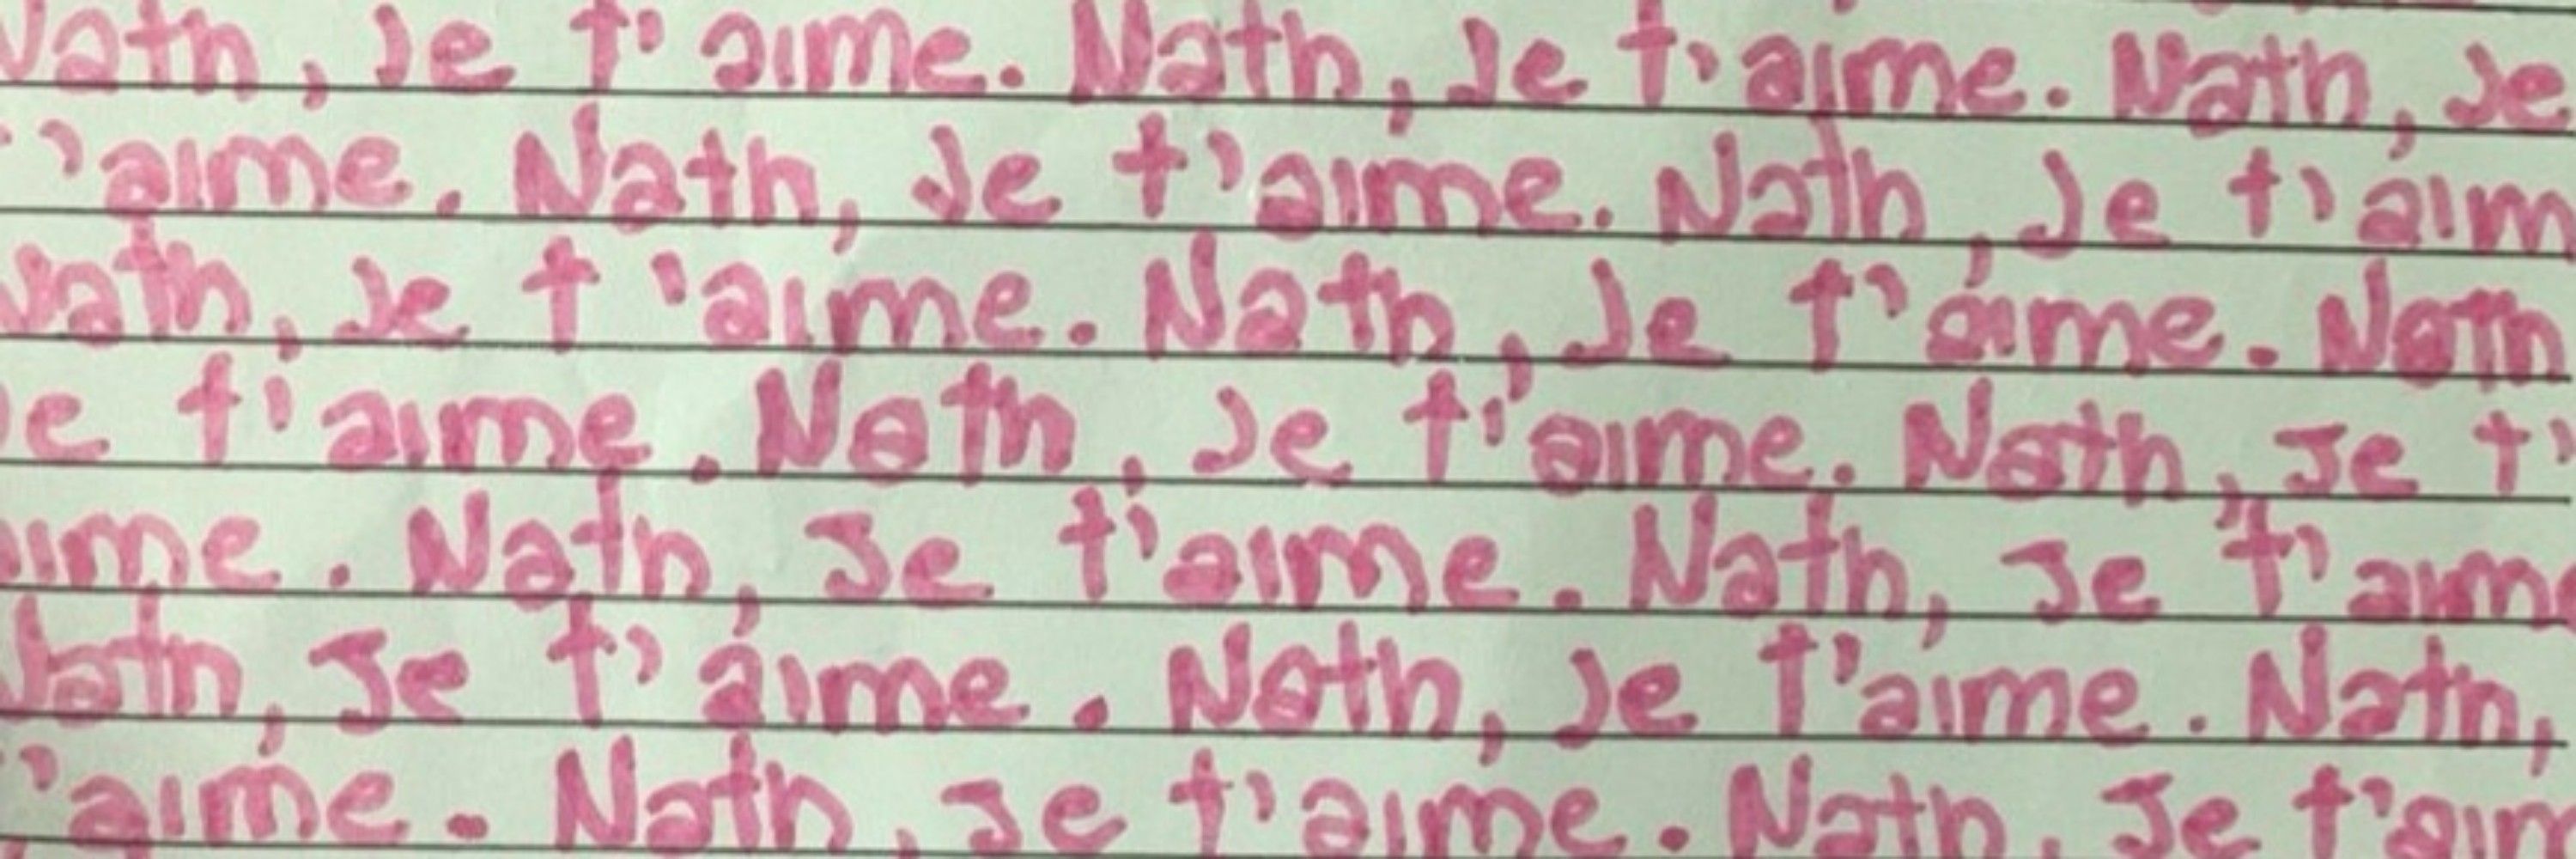 Nath, Je t'aime. Nath, Je t'aime. Nath, Je
'aime. Nath, Je t'aime. Nath, Je t'aim
Nath, Je t'aime. Nath, Je t'aime. Nath
Je t'aime. Nath, Je t'aime. Nath, Je t'
aime. Nath, Je t'aime. Nath, Je t'aime
Nath, Je t'aime. Nath, Je t'aime. Nath,
'aime. Nath, Je t'aime. Nath, Je t'aim